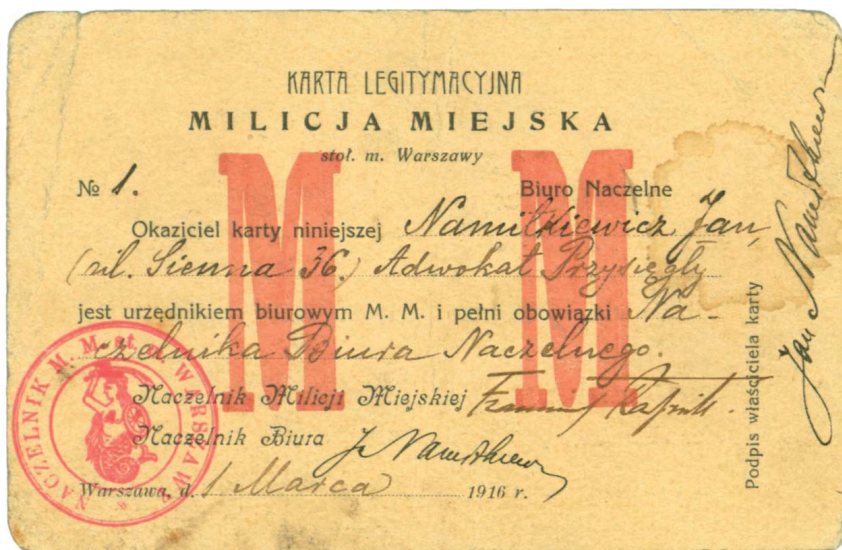 KARTA LEGITYMACYJNA
MILICJA MIEJSKA
stoł. m. Warszawy
№ 1. Biuro Naczelne
Okaziciel karty niniejszej Namitkiewicz Jan,
(ul. Sienna 36.) Adwokat Przysięgły
jest urzędnikiem biurowym M. M. i pełni obowiązki Na-
czelnika Biura Naczelnego.
Naczelnik Milicji Miejskiej
Naczelnik Biura J. Namitkiewicz
Warszawa, d. 1 Marca 1916 r.
M M
NACZELNIK M. M. st. m. WARSZAWY
Podpis właściciela karty
Jan Namitkiewicz